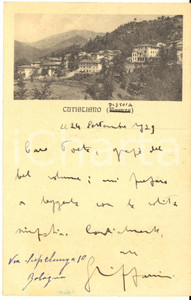 CUTIGLIANO (PISTOIA
li 24 Settembre 1929
Caro Poeta, grazie del
bel volume; mi preparo
a leggerlo con la solita
simpatia. Cordialmente,
Via
Bologna